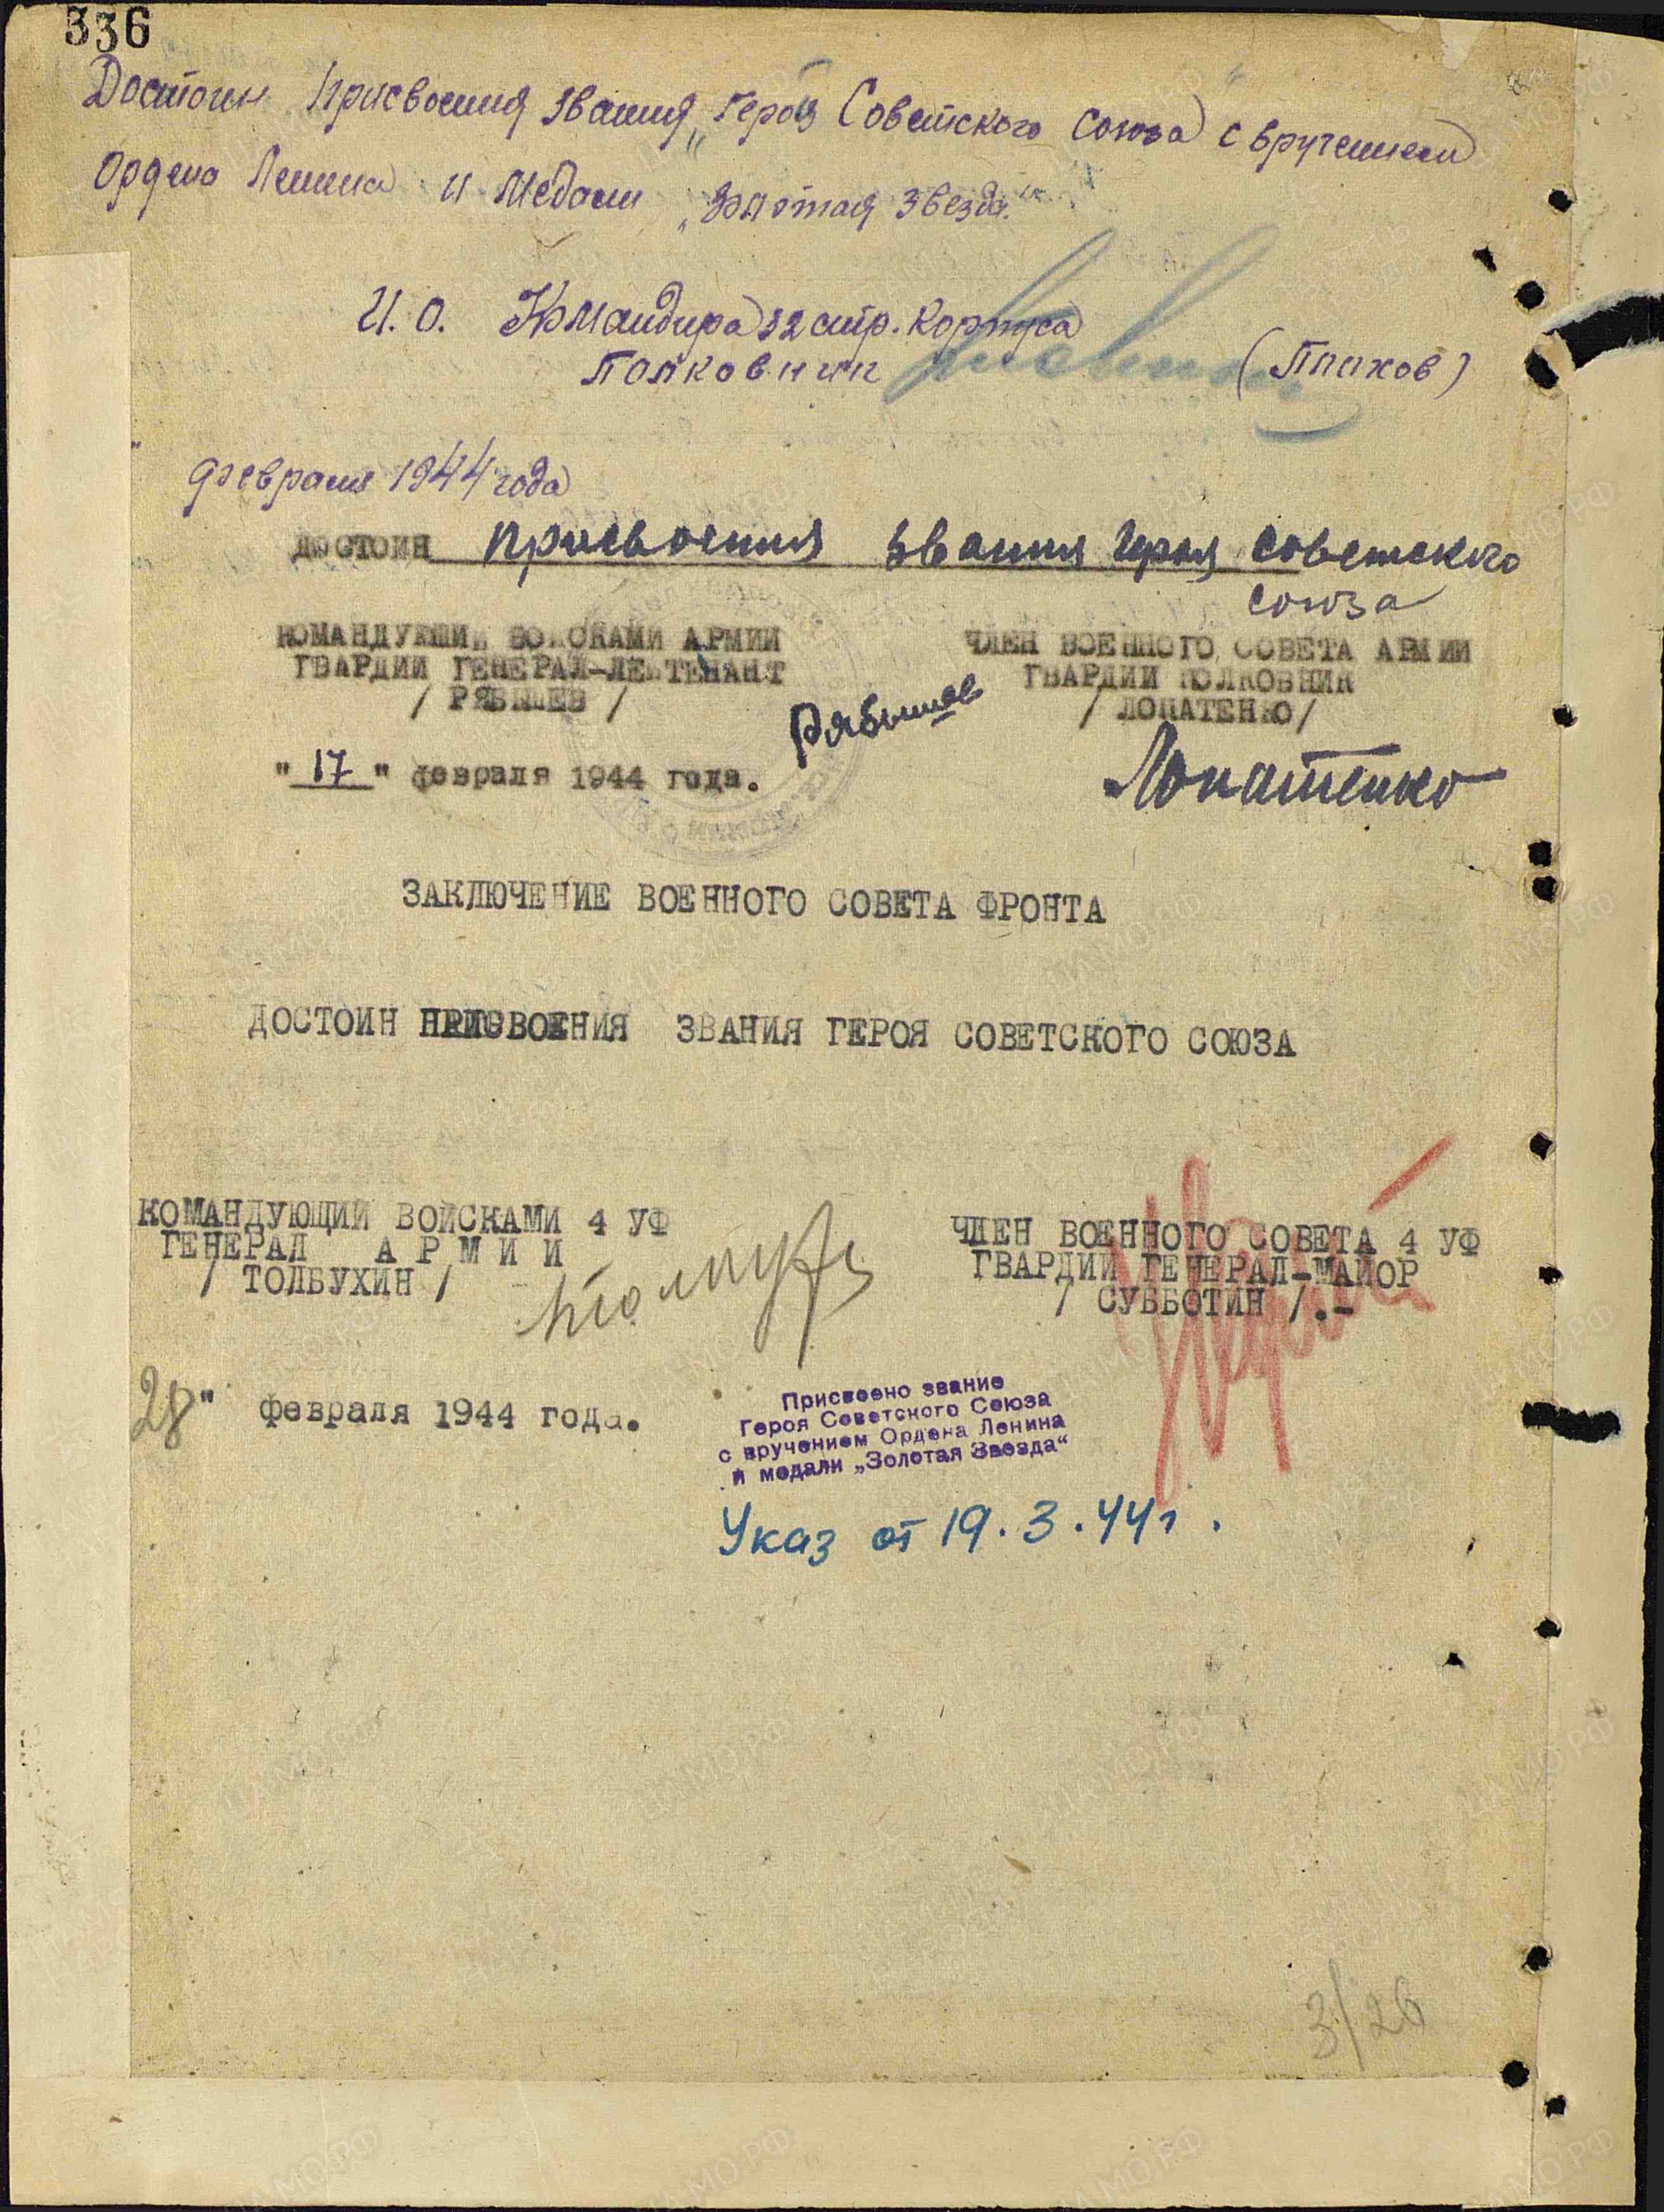 336
Достоин присвоения звания „Героя Советского Союза" с вручением
Ордена Ленина и медали „Золотая Звезда."
И.О. Командира 32 стр. Корпуса
Полковник (Плахов)
" февраля 1944 года
ДОСТОИН присвоения звания Героя Советского
Союза
КОМАНДУЮЩИЙ ВОЙСКАМИ АРМИИ
ГВАРДИИ ГЕНЕРАЛ-ЛЕЙТЕНАНТ
/ РЯБЫШЕВ /
Рябышев
ЧЛЕН ВОЕННОГО СОВЕТА АРМИИ
ГВАРДИИ ПОЛКОВНИК
/ ЛОПАТЕНКО/
Лопатенко
" 17 " февраля 1944 года.
ЗАКЛЮЧЕНИЕ ВОЕННОГО СОВЕТА ФРОНТА
ДОСТОИН ПРИСВОЕНИЯ ЗВАНИЯ ГЕРОЯ СОВЕТСКОГО СОЮЗА
КОМАНДУЮЩИЙ ВОЙСКАМИ 4 УФ
ГЕНЕРАЛ АРМИИ
/ ТОЛБУХИН /
ЧЛЕН ВОЕННОГО СОВЕТА 4 УФ
ГВАРДИИ ГЕНЕРАЛ-МАЙОР
/ СУББОТИН /.-
28" февраля 1944 года.
Присвоено звание
Героя Советского Союза
с вручением Ордена Ленина
и медали „Золотая Звезда“
Указ от 19.3.44г.
3/26